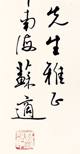 先生雅正
南海蘇適